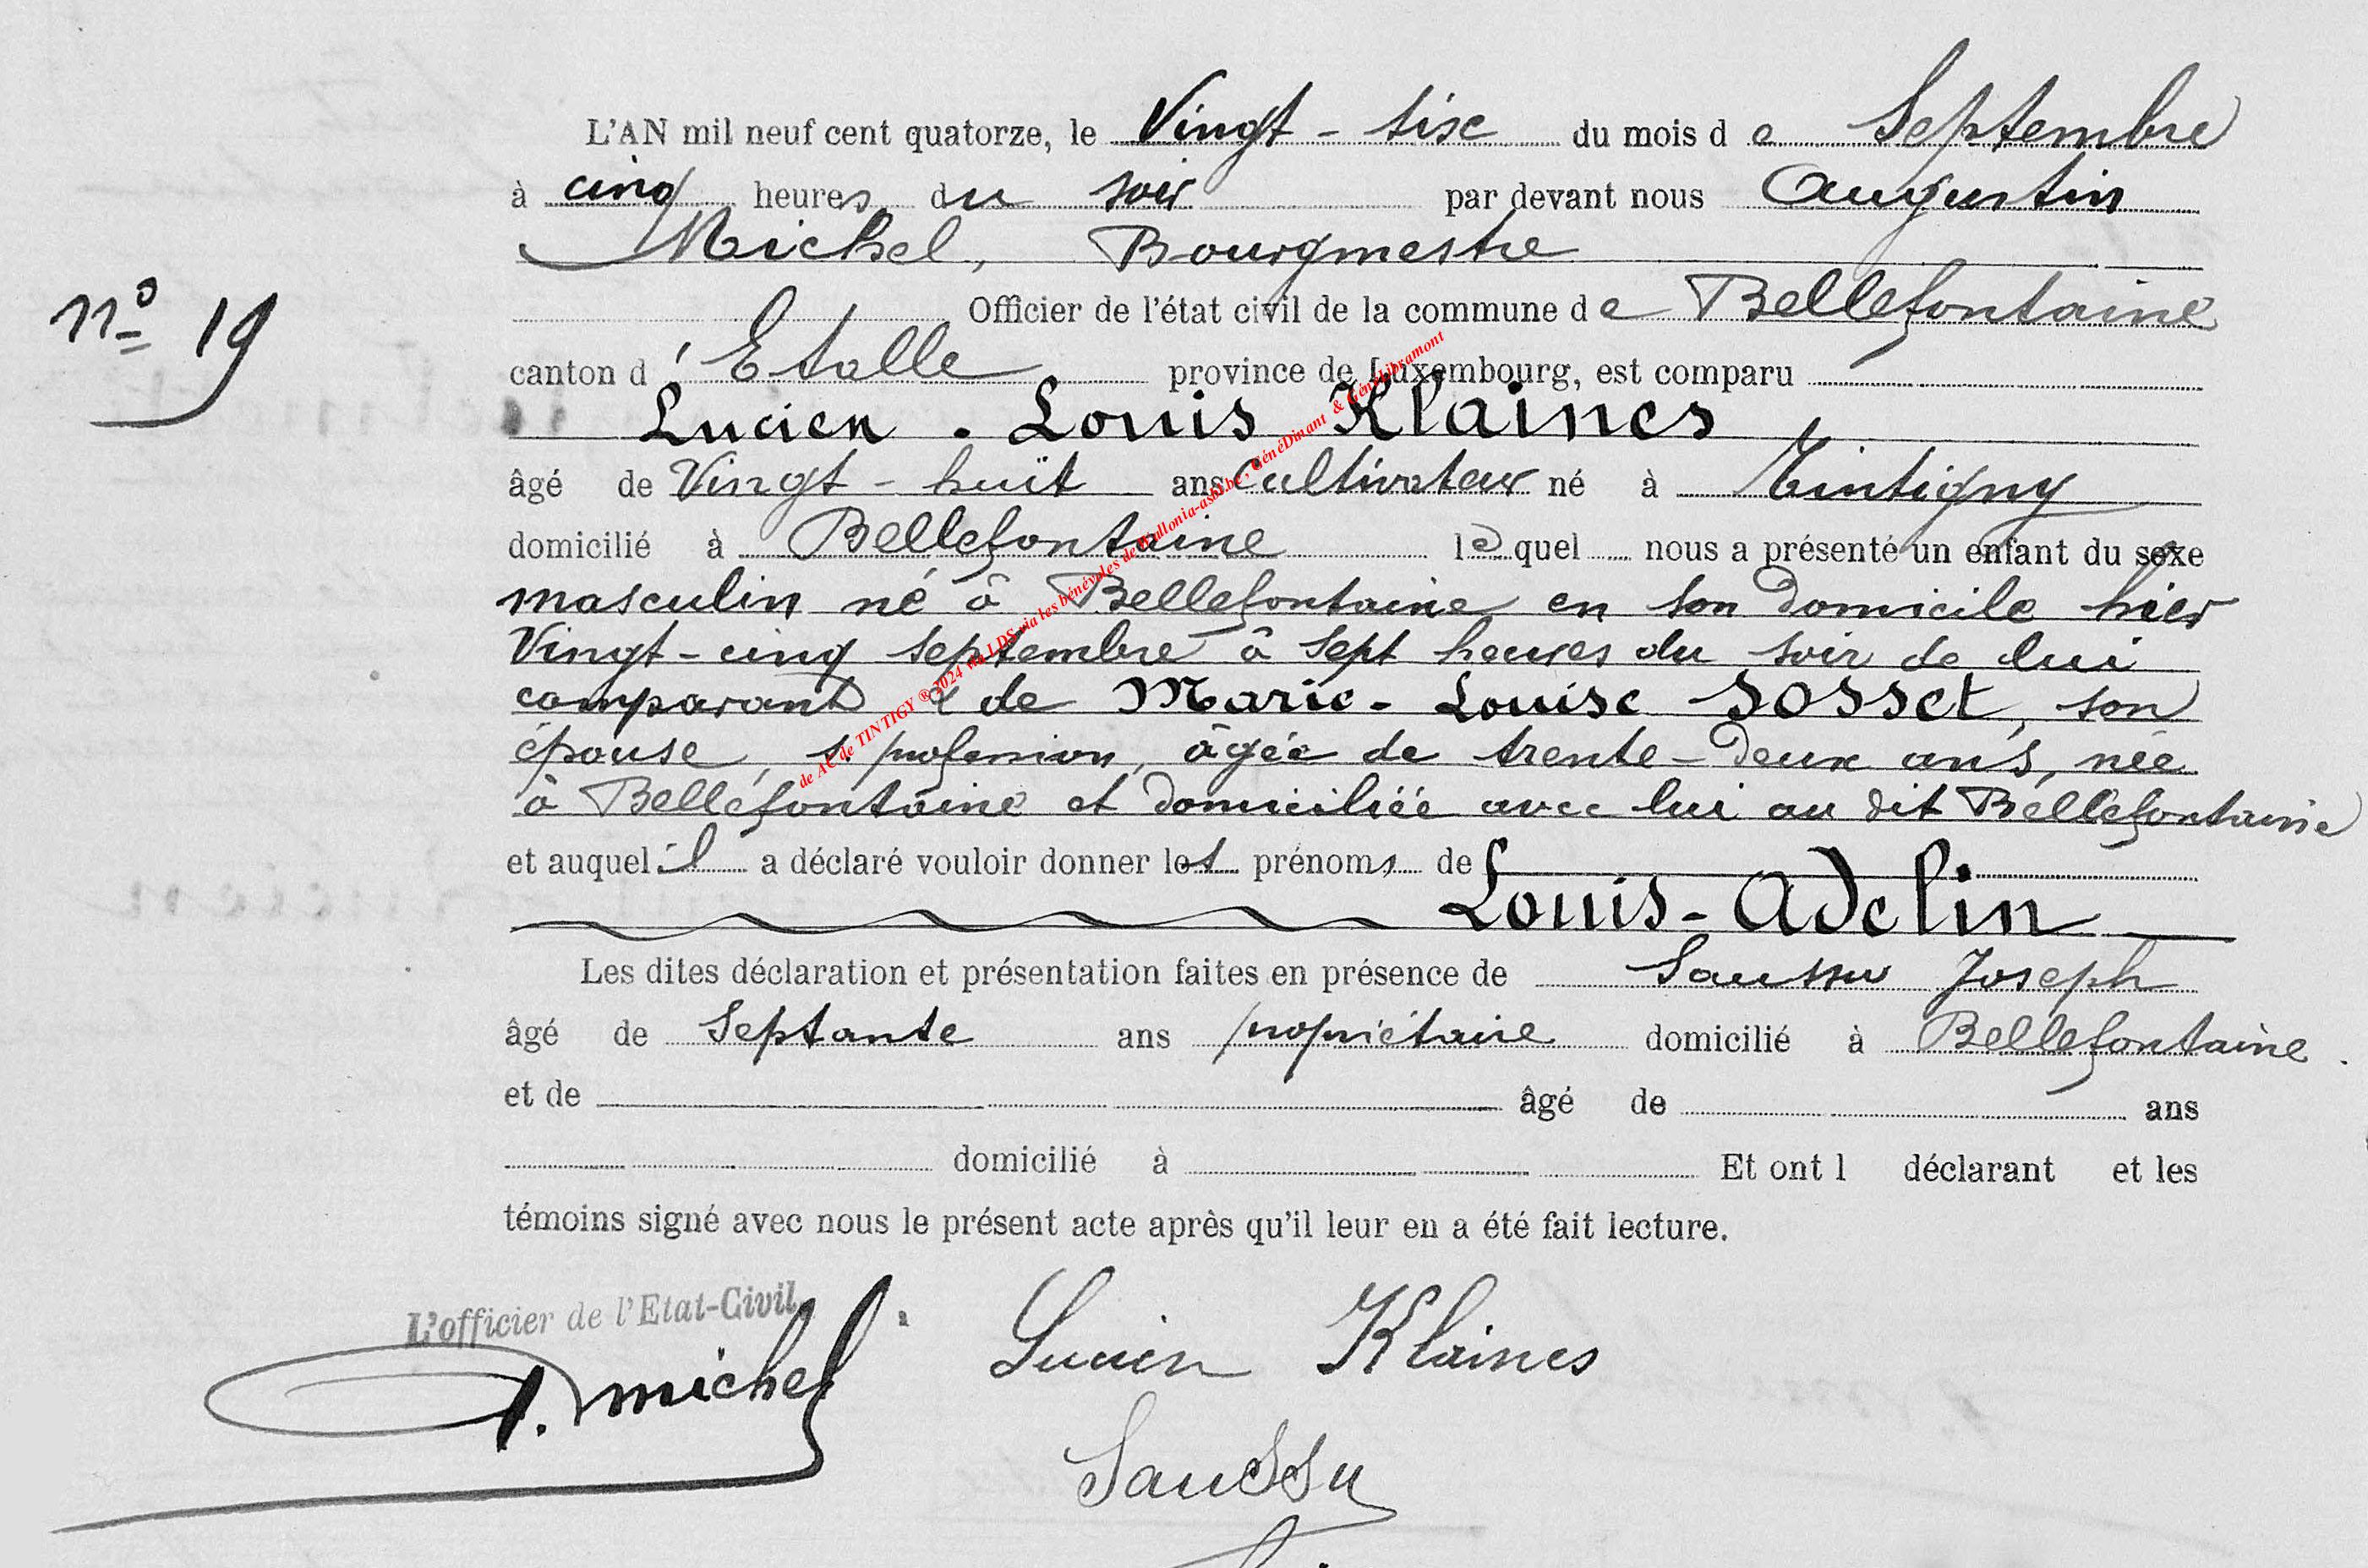 L'AN mil neuf cent quatorze, le Vingt-six du mois de Septembre
à cinq heures du soir par devant nous Augustin
Michel, Bourgmestre
nº 19
Officier de l'état civil de la commune de Bellefontaine
canton d'Etalle province de Luxembourg, est comparu
Lucien-Louis Klaines
âgé de Vingt-huit ans Cultivateur né à Tintigny
domicilié à Bellefontaine lequel nous a présenté un enfant du sexe
masculin né à Bellefontaine en son domicile hier
Vingt-cinq septembre à sept heures du soir de lui
comparant & de Marie-Louise Sosset, son
épouse, s. profession, âgée de trente-deux ans, née
à Bellefontaine et domiciliée avec lui au dit Bellefontaine
et auquel il a déclaré vouloir donner les prénoms de
Louis-Adelin
Les dites déclaration et présentation faites en présence de Saussu Joseph
âgé de Septante ans propriétaire domicilié à Bellefontaine.
et de âgé de ans
domicilié à Et ont l déclarant et les
témoins signé avec nous le présent acte après qu'il leur en a été fait lecture.
L'officier de l'Etat-Civil,
A. Michel
Lucien Klaines
Saussu
de AC de TINTIGY ® 2024 via LDS via les bénévoles de Wallonia-asbl.be, GénéDinant & GénéLibramont